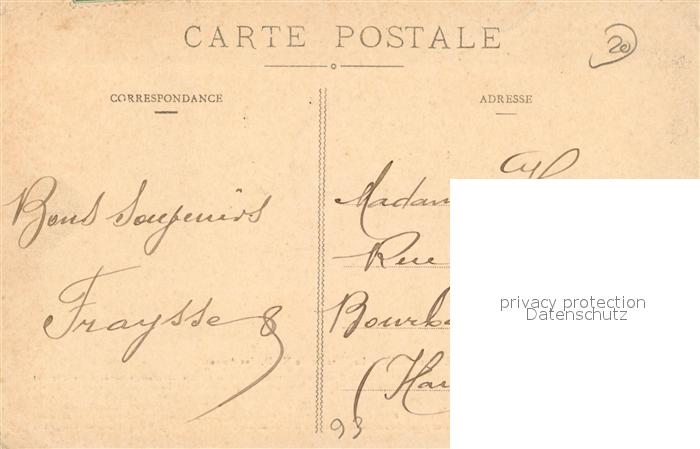 CARTE POSTALE
20
CORRESPONDANCE
ADRESSE
Bons Souvenirs
Fraysse
Madam
Rue
Bourbo
(Hau
93
privacy protection
Datenschutz